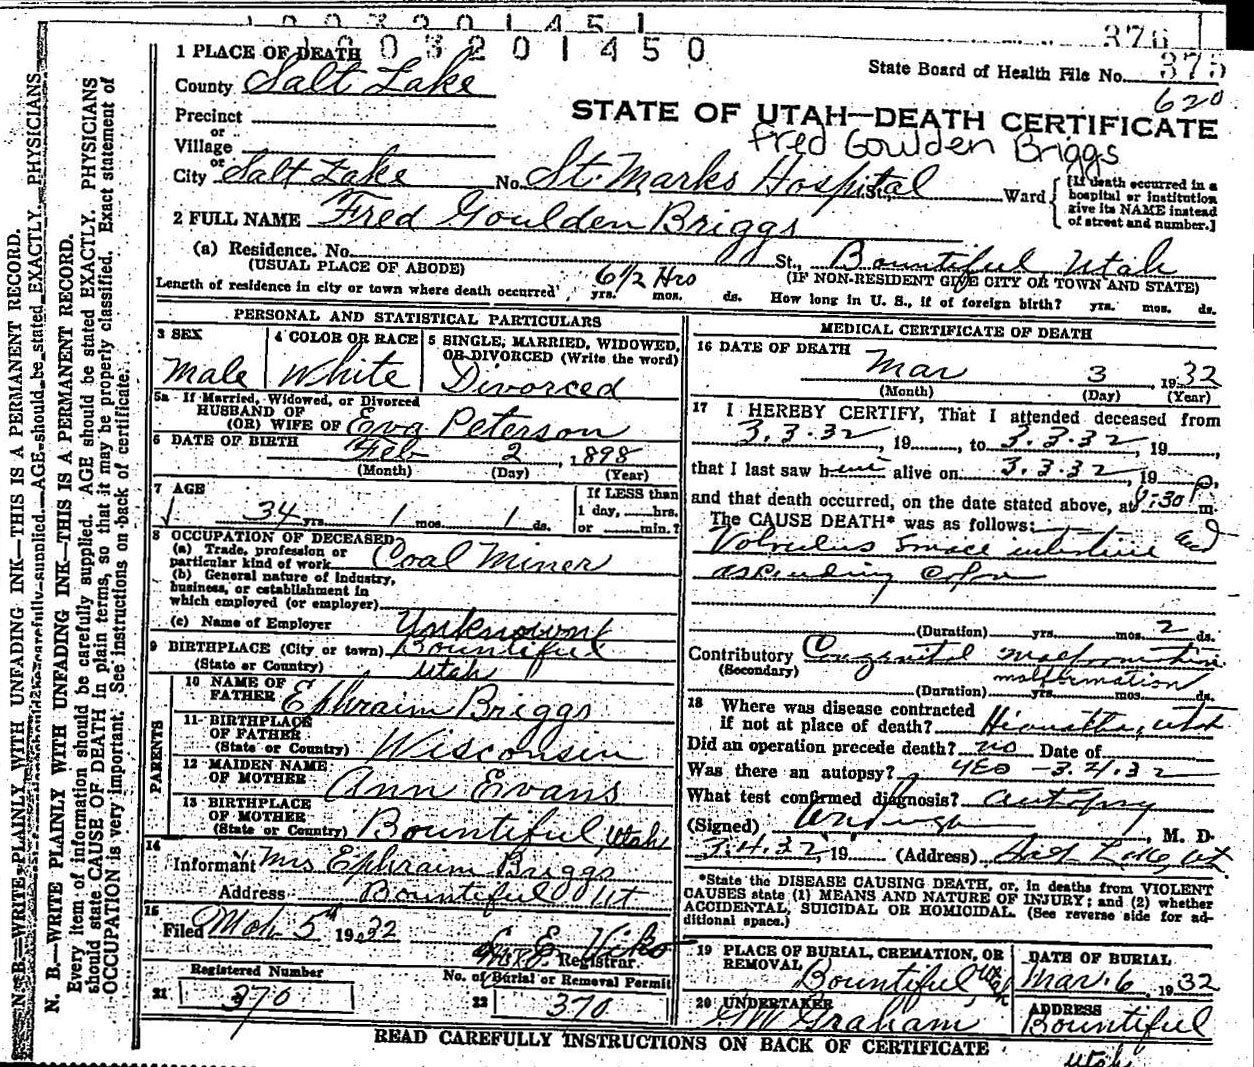 1003201451
1003201450
376
1 PLACE OF DEATH
State Board of Health File No. 375
County Salt Lake
620
STATE OF UTAH—DEATH CERTIFICATE
Precinct
or
Village
Fred Goulden Briggs
or
City Salt Lake No. St. Marks Hospital St., Ward
[If death occurred in a
hospital or institution
give its NAME instead
of street and number.]
2 FULL NAME Fred Goulden Briggs
(a) Residence. No. St., Bountiful Utah
(USUAL PLACE OF ABODE) (IF NON-RESIDENT GIVE CITY OR TOWN AND STATE)
Length of residence in city or town where death occurred 6 1/2 Hrs yrs. mos. ds. How long in U. S., if of foreign birth? yrs. mos. ds.
PERSONAL AND STATISTICAL PARTICULARS
3 SEX
Male
4 COLOR OR RACE
White
5 SINGLE, MARRIED, WIDOWED,
OR DIVORCED (Write the word)
Divorced
5a If Married, Widowed, or Divorced
HUSBAND OF
(OR) WIFE OF Eva Peterson
6 DATE OF BIRTH Feb 2, 1898
(Month) (Day) (Year)
7 AGE
34 yrs. 1 mos. 1 ds.
If LESS than
1 day, hrs.
or min.?
8 OCCUPATION OF DECEASED
(a) Trade, profession or
particular kind of work Coal Miner
(b) General nature of Industry,
business, or establishment in
which employed (or employer)
(c) Name of Employer Unknown
9 BIRTHPLACE (City or town) Bountiful
(State or Country) Utah
PARENTS
10 NAME OF
FATHER Ephraim Briggs
11 BIRTHPLACE
OF FATHER
(State or Country) Wisconsin
12 MAIDEN NAME
OF MOTHER Ann Evans
13 BIRTHPLACE
OF MOTHER
(State or Country) Bountiful, Utah
14
Informant Mrs Ephraim Briggs
Address Bountiful Ut
15
Filed Mch 5th 1932
Registrar.
Registered Number
21 370
No. of Burial or Removal Permit
22 370
MEDICAL CERTIFICATE OF DEATH
16 DATE OF DEATH
Mar 3, 1932
(Month) (Day) (Year)
17 I HEREBY CERTIFY, That I attended deceased from
3.3.32, 19, to 3.3.32, 19,
that I last saw him alive on 3.3.32, 19,
and that death occurred, on the date stated above, at :30 P. m.
The CAUSE DEATH* was as follows:
Volvulus Small intestine and
ascending colon
(Duration) yrs. mos. 2 ds.
Contributory Congenital malformation
(Secondary) malformation
(Duration) yrs. mos. ds.
18 Where was disease contracted
if not at place of death? Hiawatha, Utah
Did an operation precede death? no Date of
Was there an autopsy? yes - 3.4.32
What test confirmed diagnosis? autopsy
(Signed) M. D.
3.4.32, 19 (Address) Salt Lake, Ut
*State the DISEASE CAUSING DEATH, or, in deaths from VIOLENT
CAUSES state (1) MEANS AND NATURE OF INJURY; and (2) whether
ACCIDENTAL, SUICIDAL OR HOMICIDAL. (See reverse side for ad-
ditional space.)
19 PLACE OF BURIAL, CREMATION, OR
REMOVAL
Bountiful Utah
DATE OF BURIAL
Mar. 6, 1932
20 UNDERTAKER
GW Graham
ADDRESS
Bountiful
Utah
READ CAREFULLY INSTRUCTIONS ON BACK OF CERTIFICATE
N. B.—WRITE PLAINLY WITH UNFADING INK—THIS IS A PERMANENT RECORD.
N. B.—WRITE PLAINLY WITH UNFADING INK—THIS IS A PERMANENT RECORD.
Every item of information should be carefully supplied. AGE should be stated EXACTLY. PHYSICIANS
should state CAUSE OF DEATH in plain terms, so that it may be properly classified. Exact statement of
OCCUPATION is very important. See instructions on back of certificate.